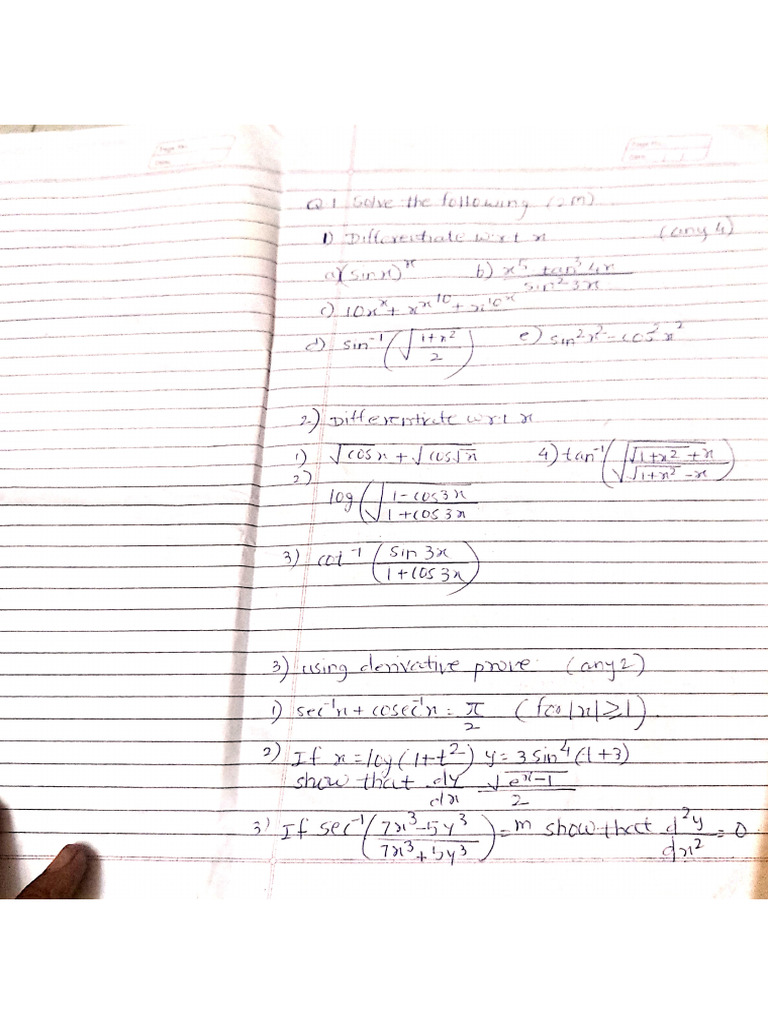 Page No.
Date
Page No.
Date
Q 1 Solve the following (2M)
1) Differentiate w.r.t x (any 4)
a) (sin x)^x b) x^5 tan^3 4x / sin^2 3x
c) 10x^x + x^x^10 + x^10^x
d) sin^-1 (√((1+x^2)/2)) e) sin^2 x^2 - cos^2 x^2
2) Differentiate w.r.t x
1) √cos x + √cos√x 4) tan^-1 (√(√(1+x^2) + x) / √(√(1+x^2) - x))
2)
log (√((1-cos3x)/(1+cos3x)))
3) cot^-1 (sin 3x / (1+cos 3x))
3) using derivative prove (any 2)
1) sec^-1 x + cosec^-1 x = π/2 (for |x| ≥ 1)
2) If x = log (1+t^2) y = 3 sin^4 (1+3)
show that dy/dx √(e^x-1) / 2
3) If sec^-1 ((7x^3-5y^3)/(7x^3+5y^3)) = m show that d^2y/dx^2 = 0